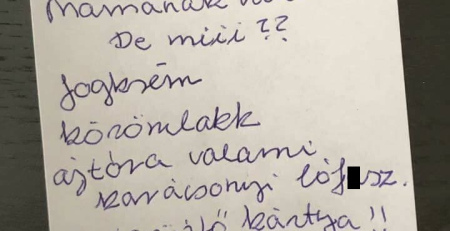 Mamának
De miii??
fogkrém
körömlakk
ajtóra valami
karácsonyi lóf sz.
kártya!!